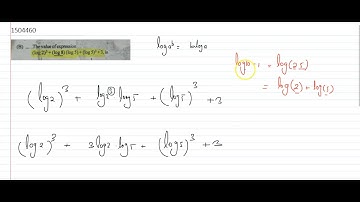 1504460
(B) ... The value of expression
(log 2)³ + (log 8) (log 5) + (log 5)³ + 3, is
log a^b = b log a
log 10 = 1 = log(2.5)
= log(2) + log(5)
(log 2)³ + log 2³ log 5 + (log 5)³ + 3
(log 2)³ + 3 log 2 log 5 + (log 5)³ + 3